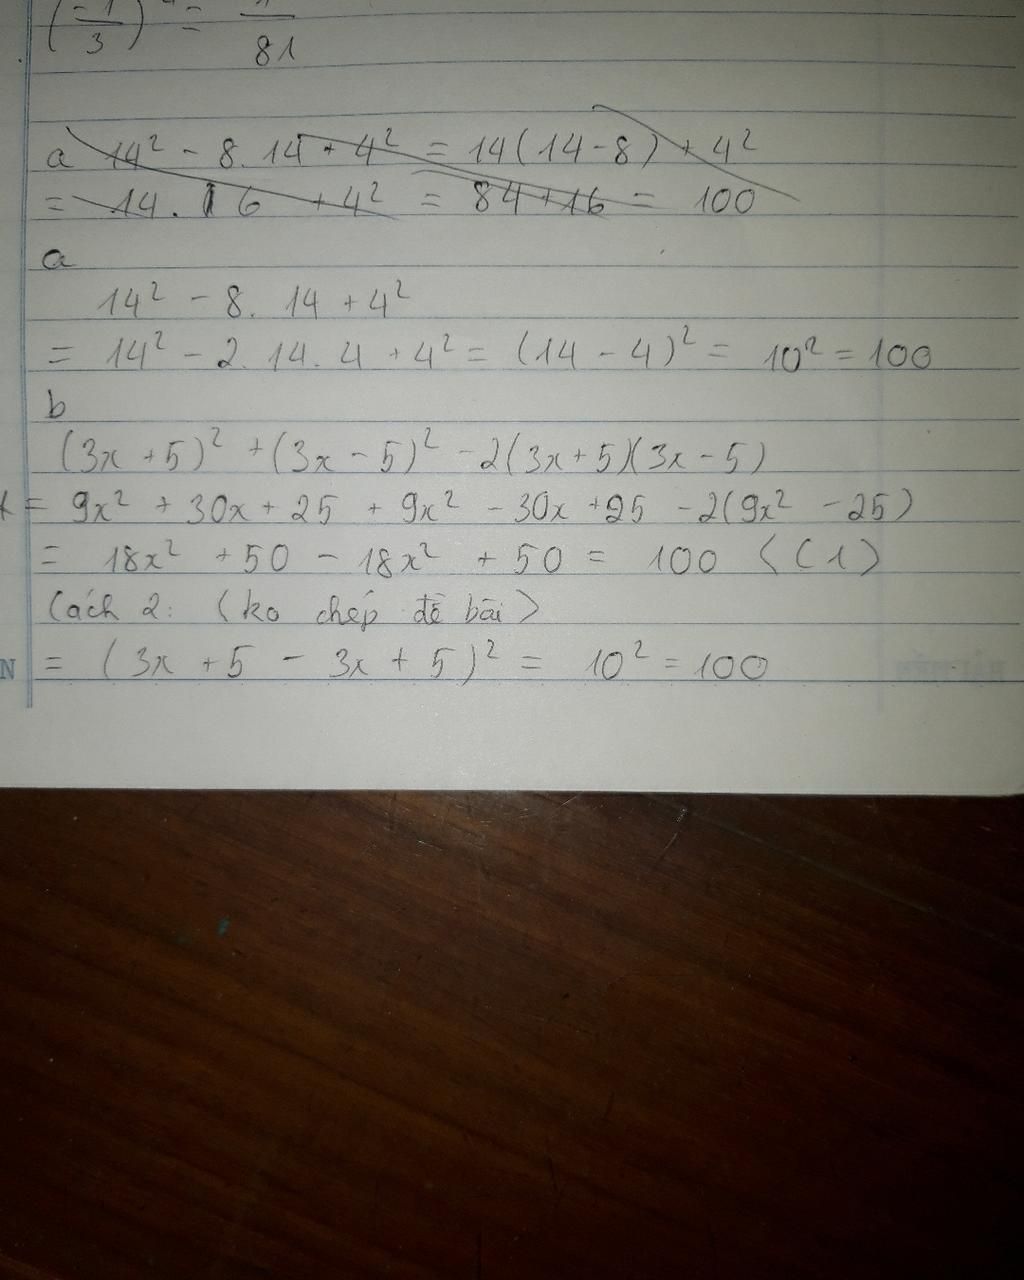 (-1/3)⁴ = 1/81
a 14² - 8. 14 + 4² = 14(14-8) + 4²
= 14. 6 + 4² = 84+16 = 100
a
14² - 8. 14 + 4²
= 14² - 2. 14. 4 + 4² = (14 - 4)² = 10² = 100
b
(3x +5)² +(3x - 5)² -2(3x+5)(3x-5)
= 9x² + 30x + 25 + 9x² - 30x +25 -2(9x² -25)
= 18x² +50 - 18x² + 50 = 100 <(1>
Cách 2: <ko chép đề bài>
N = (3x +5 - 3x + 5)² = 10² = 100